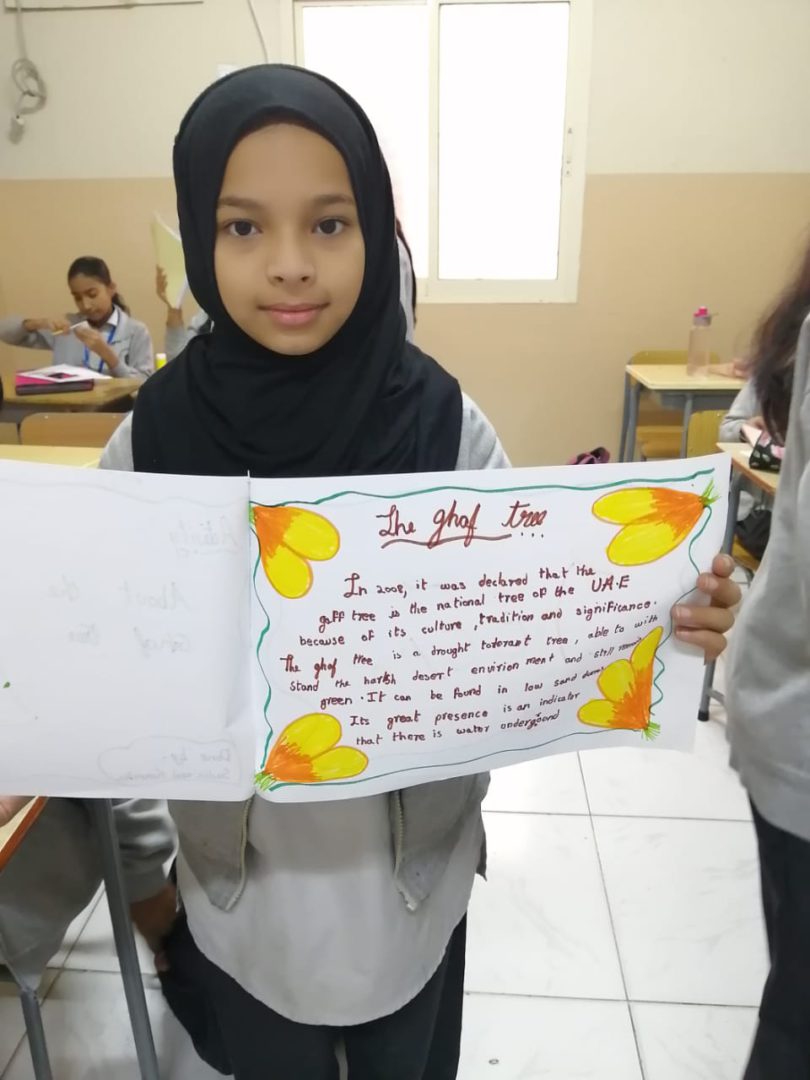 Activity
About the
Ghaf tree
Done by:-
The ghaf tree...
In 2008, it was declared that the
gaff tree is the national tree of the U.A.E
because of its culture, tradition and significance.
The ghaf tree is a drought tolerant tree, able to with
stand the harsh desert envirion ment and still
green. It can be found in low sand
Its great presence is an indicator
that there is water underground